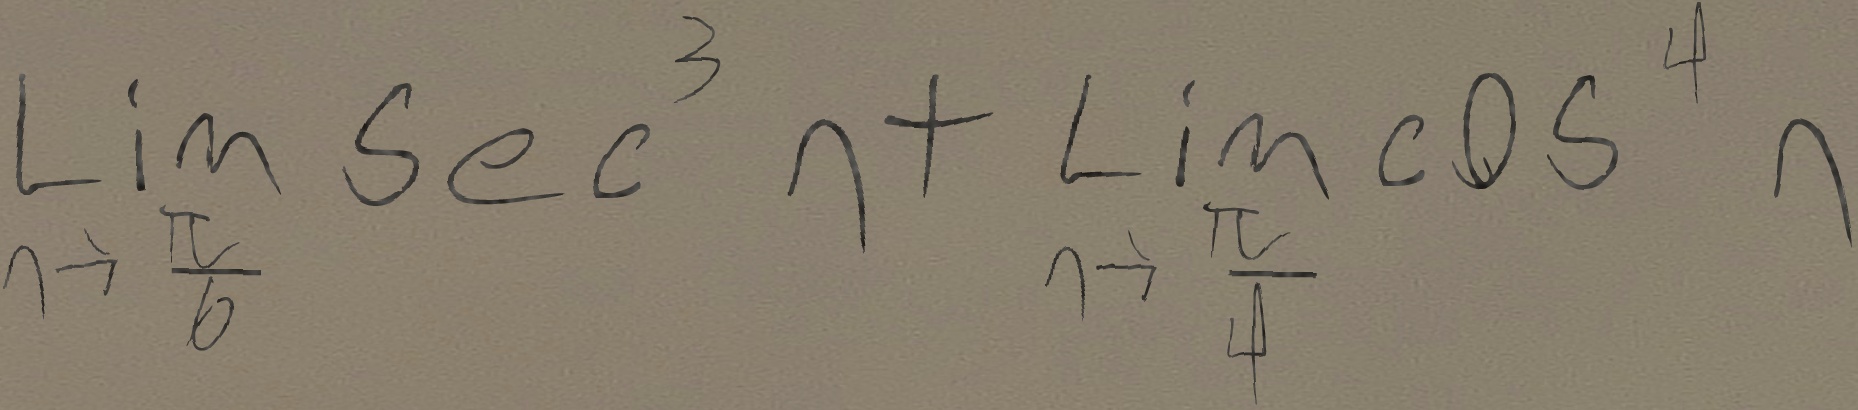 Lim_{η→π/6} Sec³ η + Lim_{η→π/4} cos⁴ η